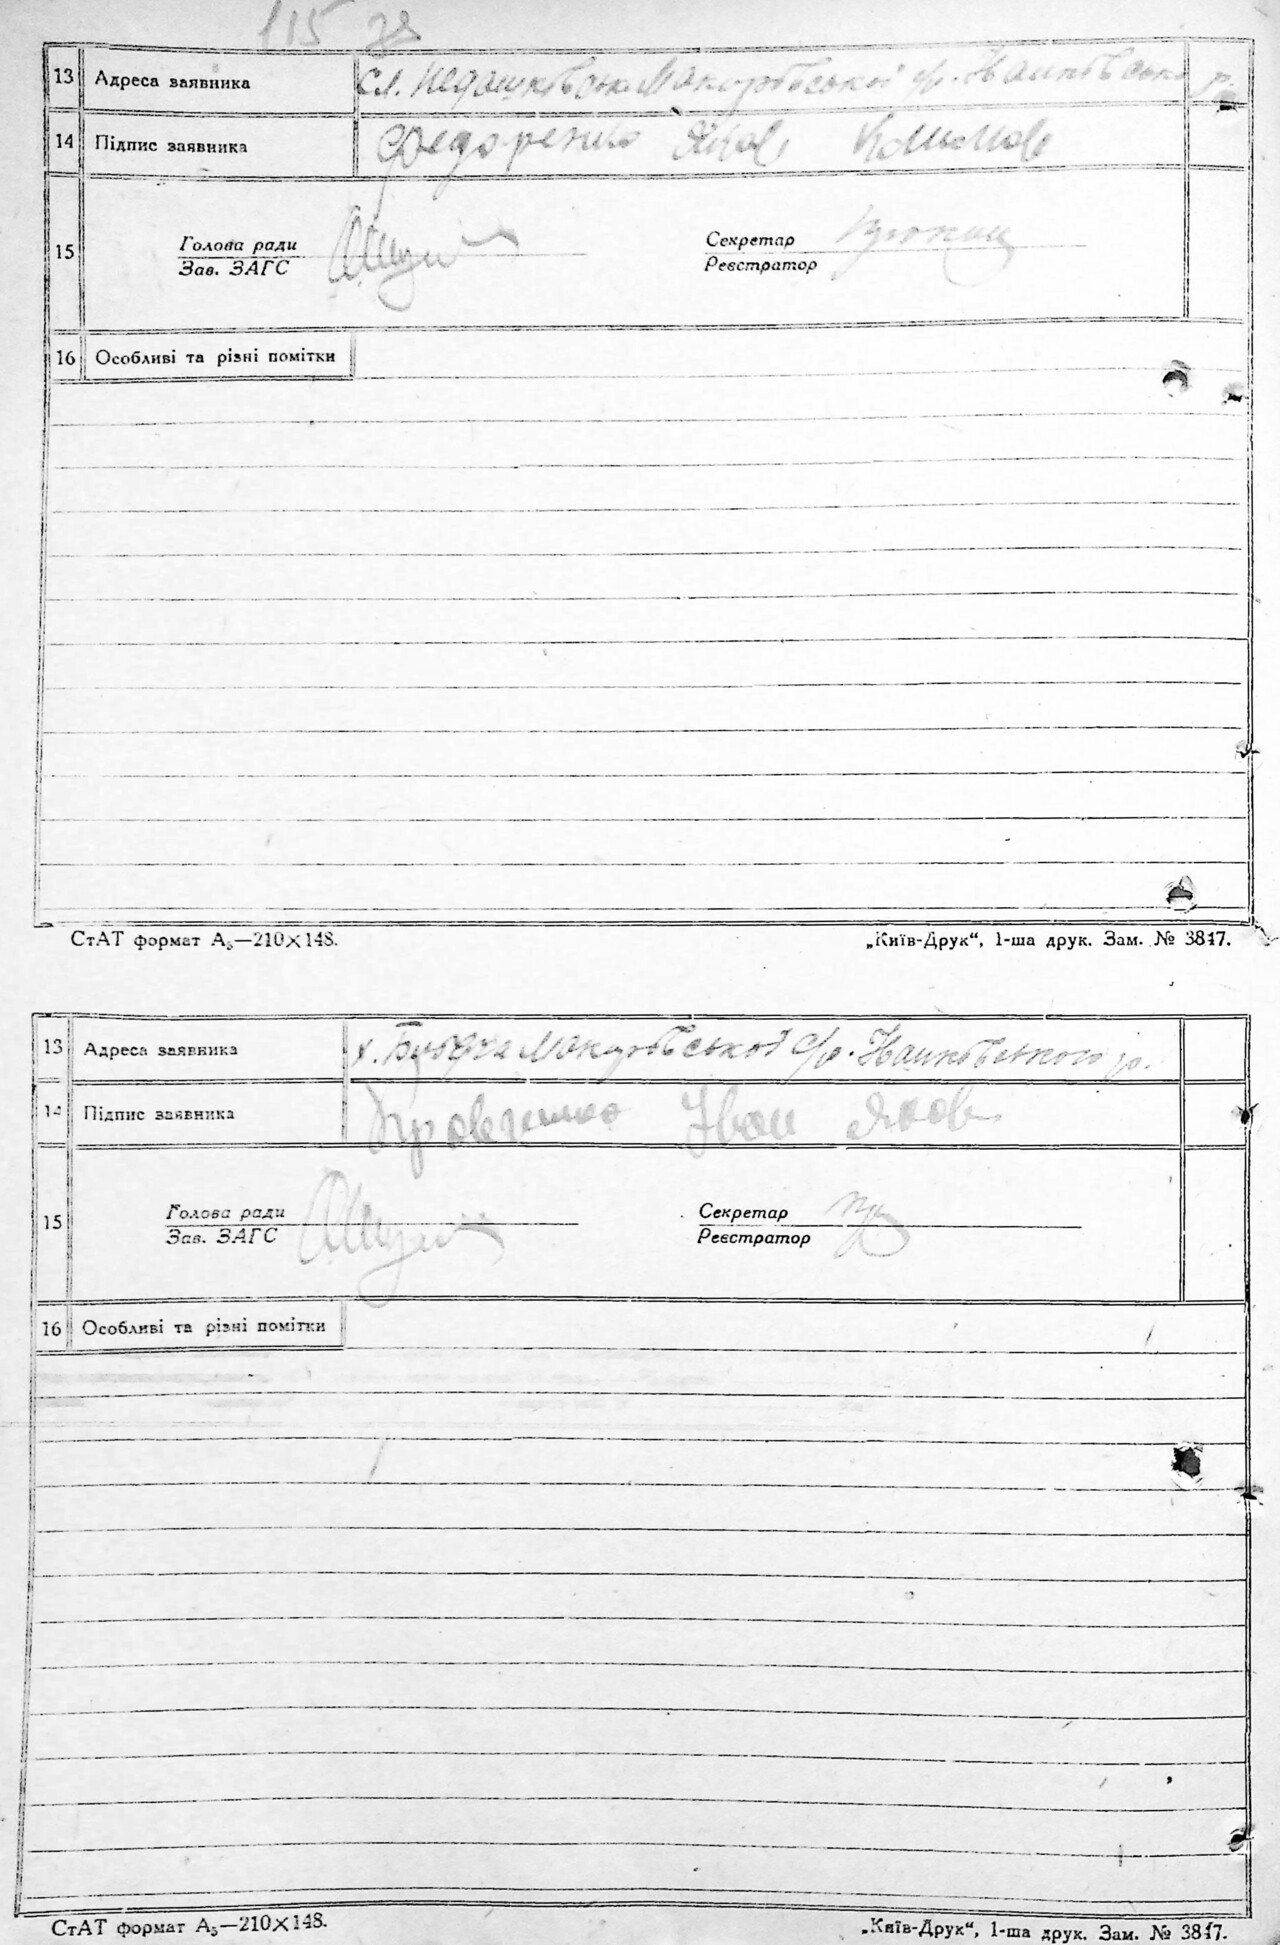 115 78
13 Адреса заявника сл. Недашківська Макурівської с/р. Наликівсько р.
14 Підпис заявника Федоренко Яков Климов
15 Голова ради Секретар
Зав. ЗАГС Реєстратор
16 Особливі та різні помітки
СтАТ формат А₅—210×148. „Київ-Друк“, 1-ша друк. Зам. № 3847.
13 Адреса заявника х. Будки Макурівської с/р.
14 Підпис заявника Кравченко Іван Яков
15 Голова ради Секретар
Зав. ЗАГС Реєстратор
16 Особливі та різні помітки
СтАТ формат А₅—210×148. „Київ-Друк“, 1-ша друк. Зам. № 3847.